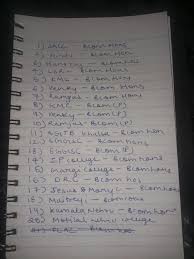 1) SRCC - Bcom Hons
2) Hindu - Bcom Hon
3) Hansraj - Bcom Hons
4) LSR - Bcom Hons
5) KMC - Bcom Hons
6) Venky - Bcom Hons
7) Ramjas - Bcom Hons
8) KMC - Bcom (P)
9) Venky - Bcom (P)
10) Ramjas - Bcom (P)
11) SGTB Khalsa - Bcom hon
12) SGGSCC - Bcom Hons
13) SGGSCC - Bcom (P)
14) IP college - Bcom hons
15) Gargi college - Bcom Hons
16) DRC - Bcom hons
17) Jesus & Mary C - Bcom Hon
18) Maitreyi - Bcom Hons
19) Kamala Nehru - Bcom hon
20) Motilal nehru college